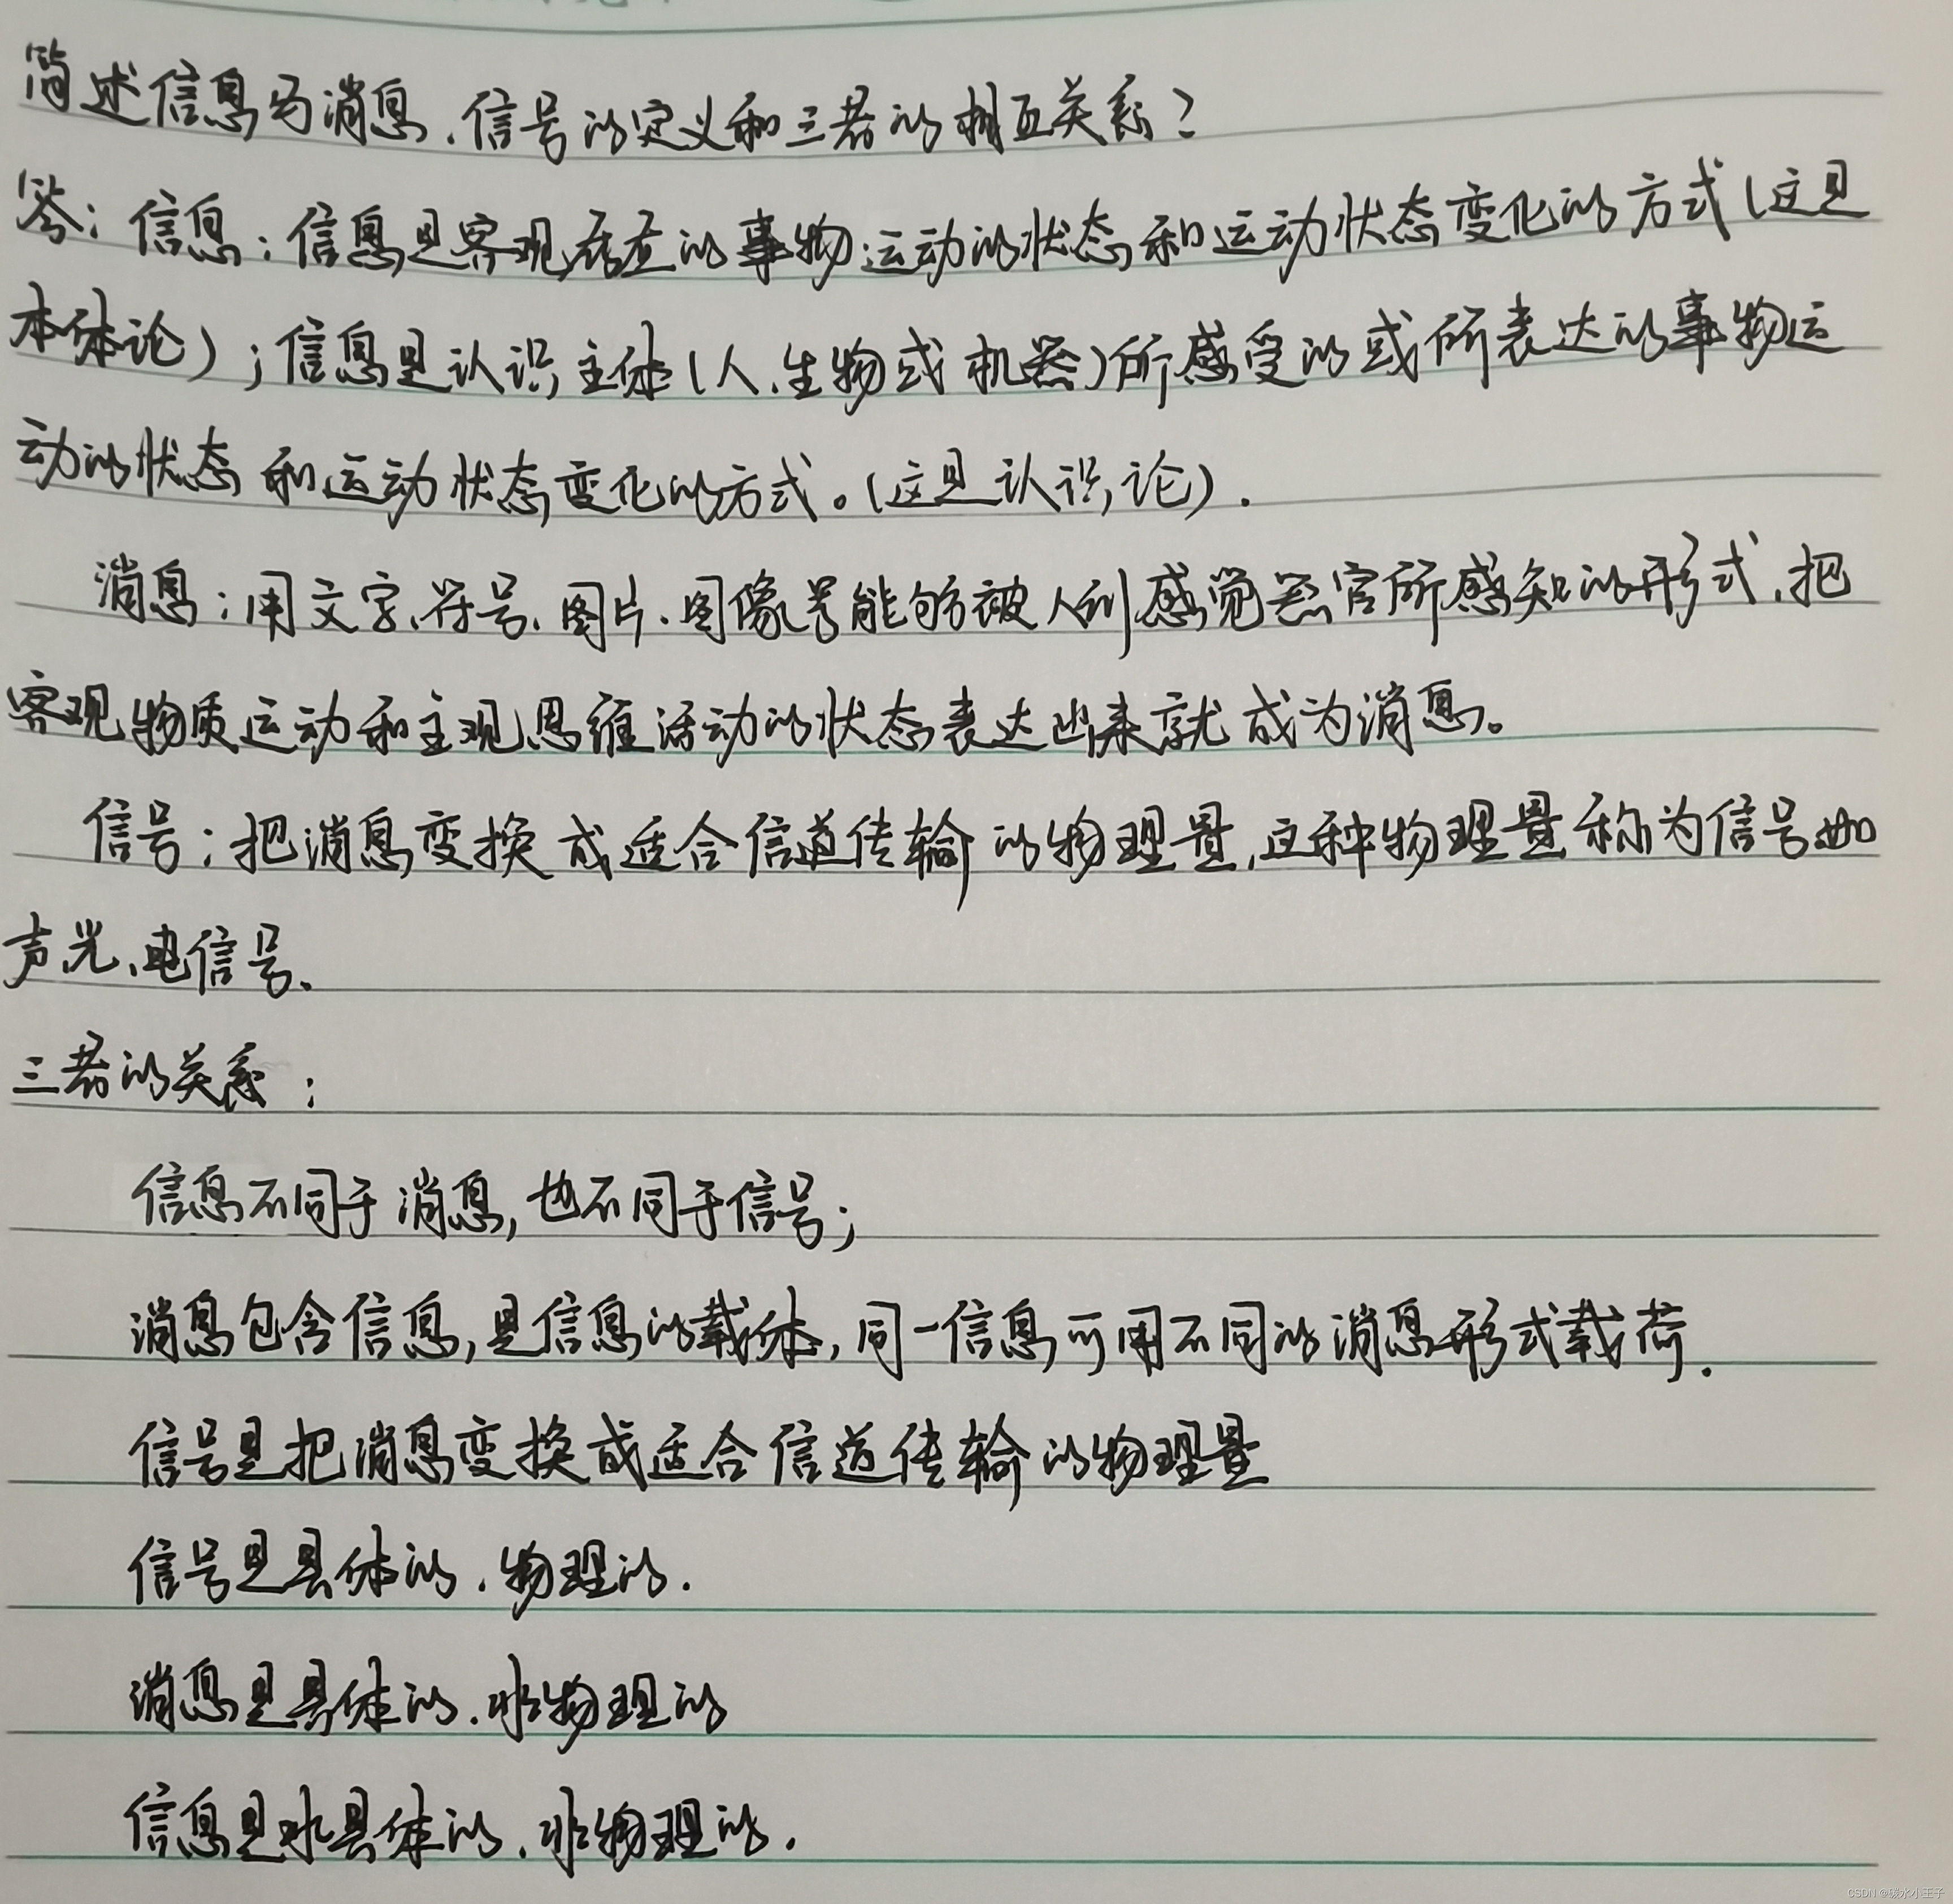 简述信息与消息、信号的定义和三者的相互关系?
答:信息:信息是客观存在的事物运动的状态和运动状态变化的方式(这是
本体论);信息是认识主体(人、生物或机器)所感受的或所表达的事物运
动的状态和运动状态变化的方式。(这是认识论).
消息:用文字、符号、图片、图像等能够被人们感觉器官所感知的形式,把
客观物质运动和主观思维活动的状态表达出来就成为消息。
信号:把消息变换成适合信道传输的物理量,这种物理量称为信号如
声、光、电信号、
三者的关系:
信息不同于消息,也不同于信号;
消息包含信息,是信息的载体,同一信息可用不同的消息形式载荷.
信号是把消息变换成适合信道传输的物理量
信号是具体的、物理的.
消息是具体的、非物理的
信息是非具体的、非物理的.
CSDN @碳水小王子